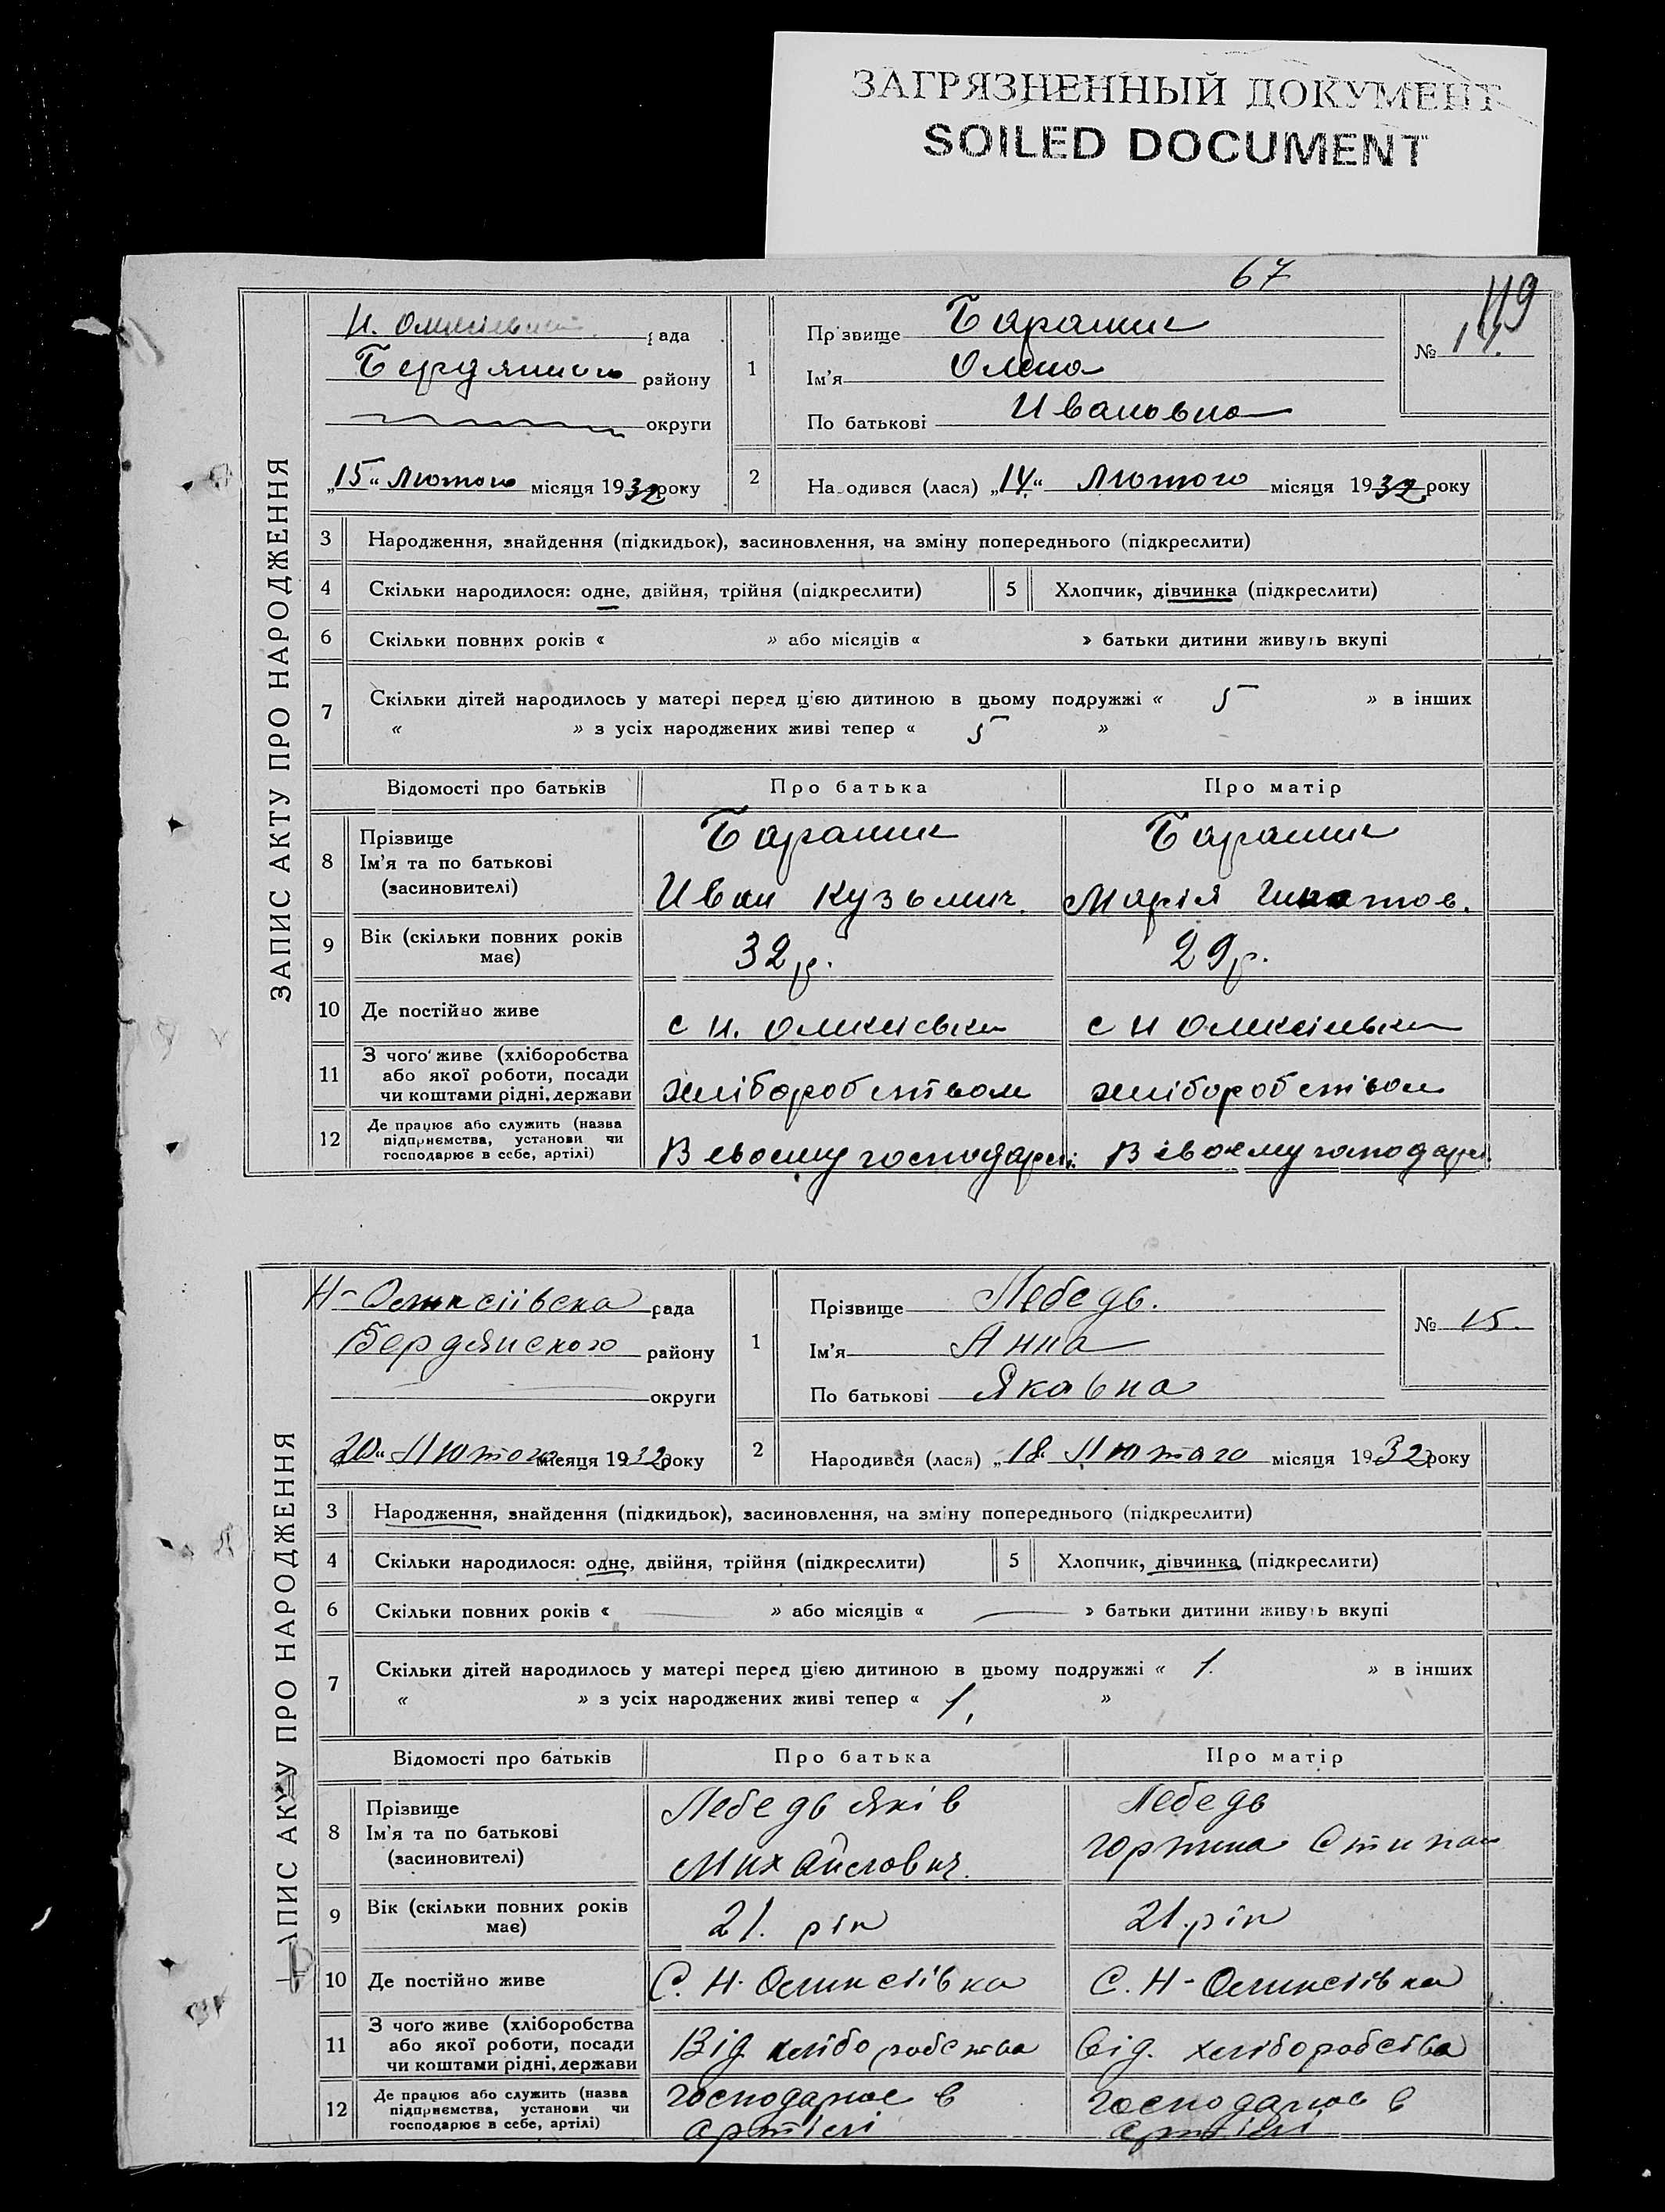 ЗАГРЯЗНЕННЫЙ ДОКУМЕНТ
SOILED DOCUMENT
67
119
ЗАПИС АКТУ ПРО НАРОДЖЕННЯ
рада
Бердянського району
округи
„15“ Лютого місяця 1932 року
1
Прізвище
Ім’я Олена
По батькові Ивановна
№ 14.
2
Народився (лася) „14“ Лютого місяця 1932 року
3 Народження, знайдення (підкидьок), засиновлення, на зміну попереднього (підкреслити)
4 Скільки народилося: одне, двійня, трійня (підкреслити)
5 Хлопчик, дівчинка (підкреслити)
6 Скільки повних років « » або місяців « » батьки дитини живуть вкупі
7 Скільки дітей народилось у матері перед цією дитиною в цьому подружжі « 5 » в інших
« » з усіх народжених живі тепер « 5 »
Відомості про батьків Про батька Про матір
8 Прізвище
Ім’я та по батькові
(засновителі)
Иван Кузьмич.
Марія
9 Вік (скільки повних років має) 32 р. 29 р.
10 Де постійно живе с Н. Олексіевка с Н Олексіевка
11 З чого живе (хліборобства
або якої роботи, посади
чи коштами рідні, держави
хліборобством хліборобством
12 Де працює або служить (назва
підприємства, установи чи
господарює в себе, артілі)
В своєму господарсі. В своєму господарсі.
АПИС АКТУ ПРО НАРОДЖЕННЯ
Н-Олексіївска рада
Бердянского району
округи
„20“ Лютого місяця 1932 року
1
Прізвище Лебедь.
Ім’я Анна
По батькові Яковна
№ 15.
2
Народився (лася) „18“ Лютого місяця 1932 року
3 Народження, знайдення (підкидьок), засиновлення, на зміну попереднього (підкреслити)
4 Скільки народилося: одне, двійня, трійня (підкреслити)
5 Хлопчик, дівчинка (підкреслити)
6 Скільки повних років « » або місяців « » батьки дитини живуть вкупі
7 Скільки дітей народилось у матері перед цією дитиною в цьому подружжі « 1. » в інших
« » з усіх народжених живі тепер « 1, »
Відомості про батьків Про батька Про матір
8 Прізвище
Ім’я та по батькові
(засиновителі)
Лебедь Яків
Михайлович.
Лебедь
9 Вік (скільки повних років має) 21. рік 21. рік
10 Де постійно живе С. Н. Олексіївка С. Н-Олексіївка
11 З чого живе (хліборобства
або якої роботи, посади
чи коштами рідні, держави
Від хліборобства від. хліборобства
12 Де працює або служить (назва
підприємства, установи чи
господарює в себе, артілі)
господарює в
артілі
господарює в
артілі